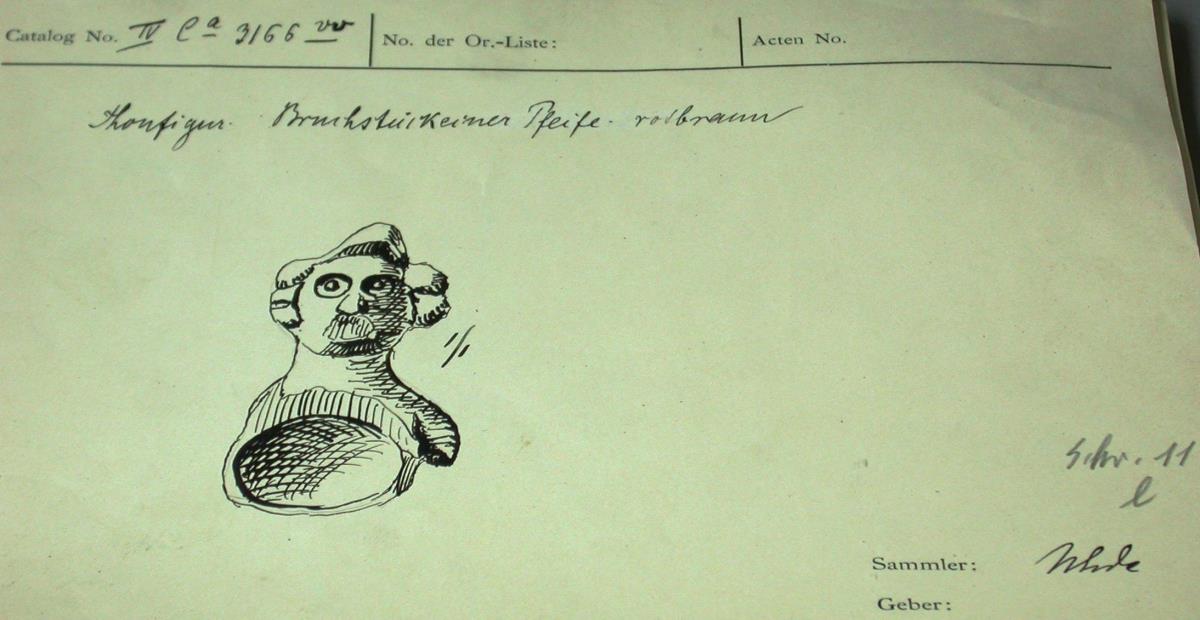 Catalog No. IV Ca 3166 vv No. der Or.-Liste: Acten No.
Thonfigur. Bruchstück einer Pfeife. rotbraun
1/1
Schr. 11
l
Sammler: Uhde
Geber: